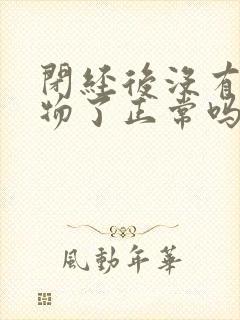 閉經後沒有
物了正常嗎
風動年華